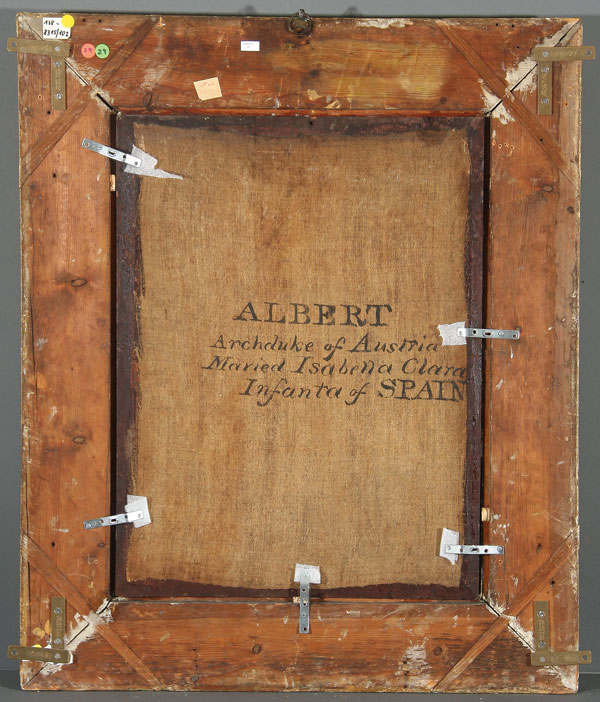 138-
8315/102
29
29
ALBERT
Archduke of Austria
Maried Isabella Clara
Infanta of SPAIN